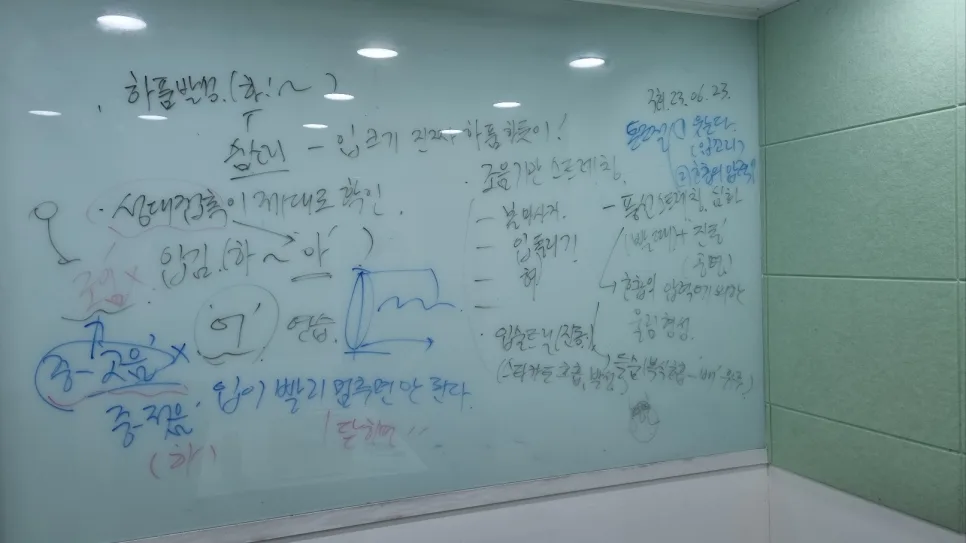 하품발성.(하!~)
참소리 - 입 크기 진짜 하품하듯이!
· 성대접촉이 제대로 확인.
입김.(하~아')
고음 X
중-고음' X
'어' 연습.
중-저음 · 입이 빨리 멈추면 안 된다.
(하)
닫히면
23.06.23.
① 웃는다.
(입꼬리)
② 호흡의 압력
· 조음기관 스트레칭.
- 볼 마사지.
- 입 풀리기
- 혀
-
- 풍선 스트레칭. 심화
"진동"
(공명)
→ 호흡의 압력에 의한
울림 형성.
· 입술트릴(진동)
(스타카토 호흡, 발성